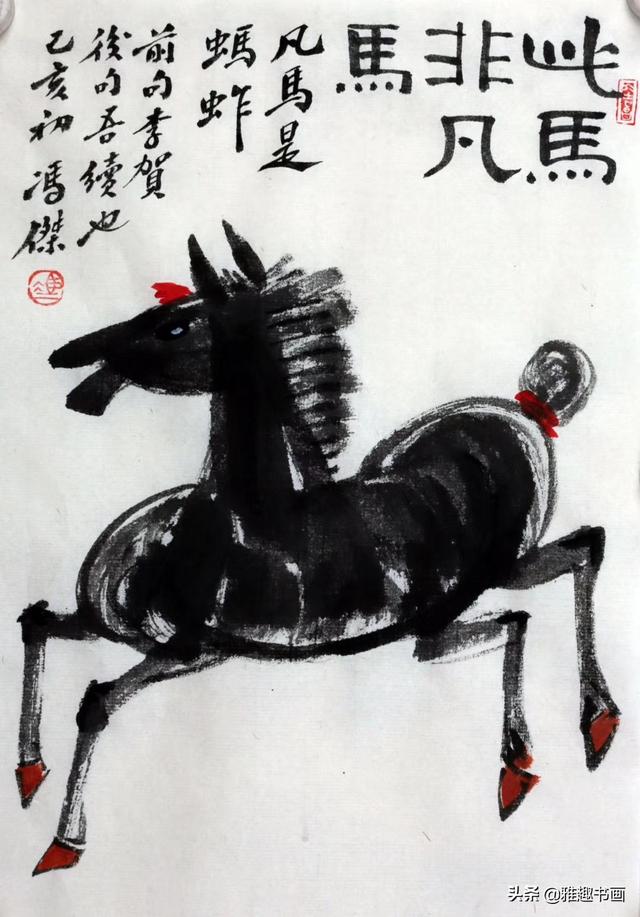 此馬
非凡
馬
凡馬是
螞蚱
前句李賀
後句吾續也
己亥初 馮傑
头条 @雅趣书画